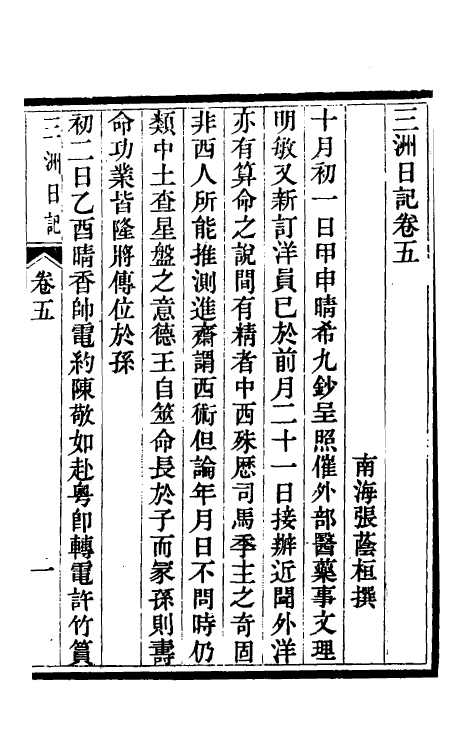 三洲日記卷五
南海張蔭桓撰
十月初一日甲申晴希九鈔呈照催外部醫藥事文理
明敏又新訂洋員已於前月二十一日接辦近聞外洋
亦有算命之說間有精者中西殊厯司馬季主之奇固
非西人所能推測進齋謂西術但論年月日不問時仍
類中土查星盤之意德王自筮命長於子而冢孫則壽
命功業皆隆將傳位於孫
初二日乙酉晴香帥電約陳敬如赴粵卽轉電許竹篔
三洲日記
卷五
一